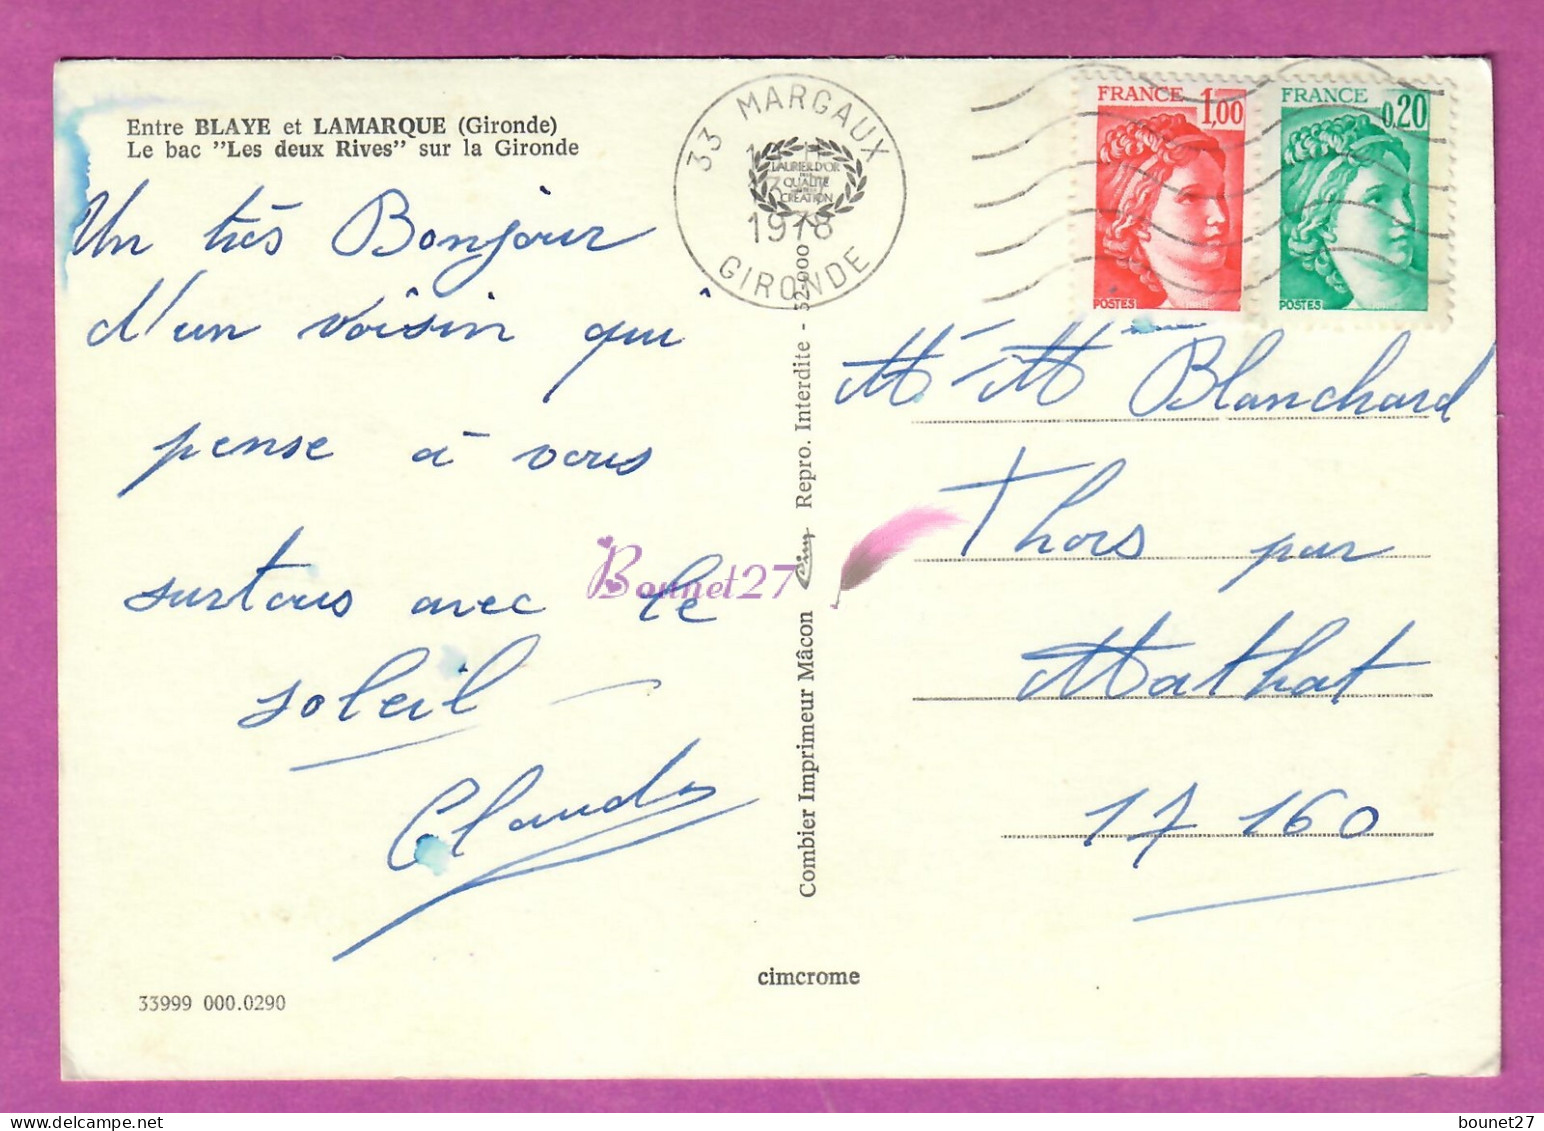 Entre BLAYE et LAMARQUE (Gironde)
Le bac "Les deux Rives" sur la Gironde
Un très Bonjour
d'un voisin qui
pense à vous
surtous avec le
soleil
Claude
33999 000.0290
33 MARGAUX
LAURIER D'OR
QUALITE
CREATION
1978
GIRONDE
Combier Imprimeur Mâcon Cim Repro. Interdite - 52.000
cimcrome
Bounet27
FRANCE 1,00
POSTES
FRANCE 0,20
POSTES
M-M Blanchard
Thors par
Mathat
17 160
bounet27